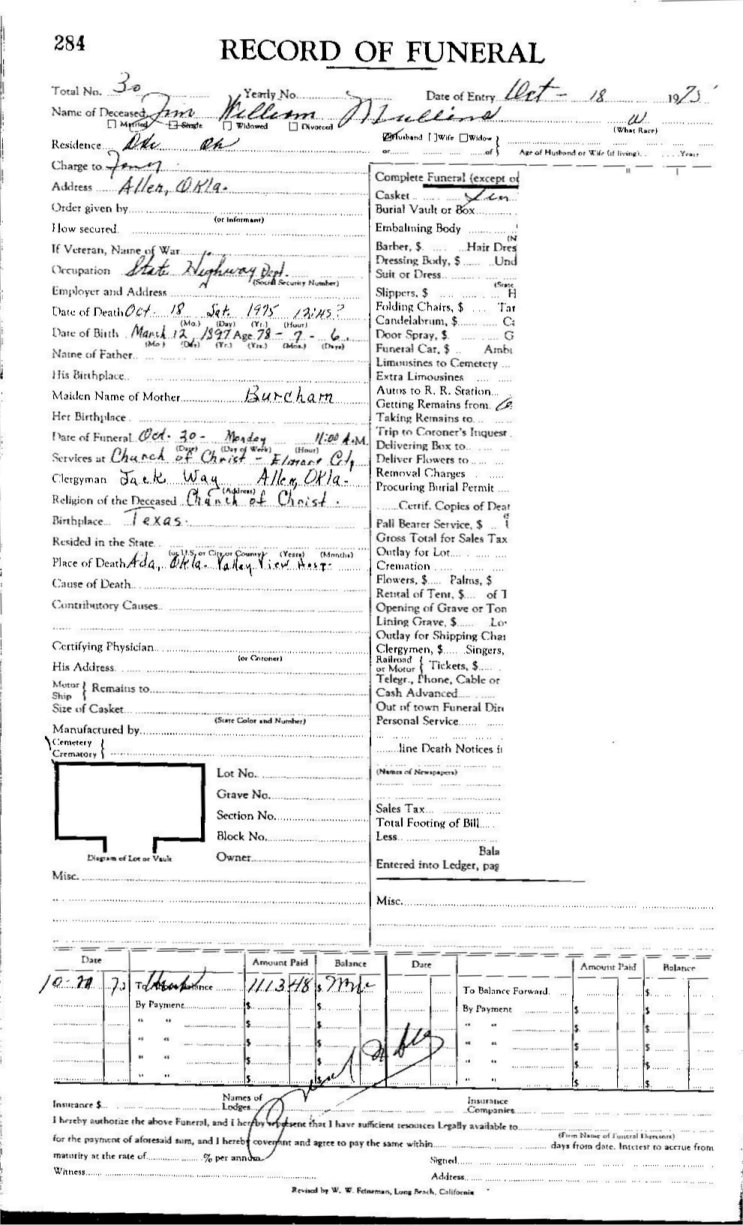 284
RECORD OF FUNERAL
Total No. 30 Yearly No. Date of Entry Oct - 18 1975
Name of Deceased Jim William Mullins W
☐ Married ☐ Single ☐ Widowed ☐ Divorced (What Race)
Residence Husband [ ]Wife ☐Widow
or of Age of Husband or Wife (if living) Years
Charge to Family
Address Allen, Okla.
Order given by
(or informant)
How secured
If Veteran, Name of War
Occupation State Highway Dept.
(Social Security Number)
Employer and Address
Date of Death Oct. 18 Sat. 1975 12:45?
(Mo.) (Day) (Yr.) (Hour)
Date of Birth March 12, 1897 Age 78 - 7 - 6
(Mo.) (Day) (Yr.) (Yrs.) (Mos.) (Days)
Name of Father
His Birthplace
Maiden Name of Mother Burcham
Her Birthplace
Date of Funeral Oct. 30 - Monday 11:00 A.M.
(Date) (Day of Week) (Hour)
Services at Church of Christ - Elmore City
Clergyman Jack Way Allen, Okla.
(Address)
Religion of the Deceased Church of Christ.
Birthplace Texas.
Resided in the State
(or U.S. or City or County) (Years) (Months)
Place of Death Ada, Okla. Valley View Hosp.
Cause of Death
Contributory Causes
Certifying Physician
(or Coroner)
His Address
Motor
Ship } Remains to
Size of Casket
(State Color and Number)
Manufactured by
Cemetery
Crematory }
Lot No.
Grave No.
Section No.
Block No.
Diagram of Lot or Vault
Owner
Misc.
Complete Funeral (except of
Casket
Burial Vault or Box
Embalming Body
(N
Barber, $ Hair Dres
Dressing Body, $ Und
Suit or Dress
(State
Slippers, $ H
Folding Chairs, $ Tar
Candelabrum, $ Ca
Door Spray, $ G
Funeral Car, $ Ambu
Limousines to Cemetery
Extra Limousines
Autos to R. R. Station
Getting Remains from
Taking Remains to
Trip to Coroner's Inquest
Delivering Box to
Deliver Flowers to
Removal Charges
Procuring Burial Permit
Certif. Copies of Deat
Pall Bearer Service, $
Gross Total for Sales Tax
Outlay for Lot
Cremation
Flowers, $ Palms, $
Rental of Tent, $ of T
Opening of Grave or Tom
Lining Grave, $ Lo
Outlay for Shipping Char
Clergymen, $ Singers,
Railroad
or Motor { Tickets, $
Telegr., Phone, Cable or
Cash Advanced
Out of town Funeral Dire
Personal Service
line Death Notices i
(Names of Newspapers)
Sales Tax
Total Footing of Bill
Less
Bala
Entered into Ledger, pag
Misc.
Date Amount Paid Balance Date Amount Paid Balance
To Balance 1113 48 $ To Balance Forward $
By Payment $ $ By Payment $ $
" " $ $ " " $ $
" " $ $ " " $ $
" " $ $ " " $ $
" " $ $ " " $ $
Insurance $ Names of Lodges Insurance Companies
I hereby authorize the above Funeral, and I hereby represent that I have sufficient resources Legally available to
(Firm Name of Funeral Directors)
for the payment of aforesaid sum, and I hereby covenant and agree to pay the same within days from date. Interest to accrue from
maturity at the rate of % per annum. Signed
Witness Address
Revised by W. W. Feineman, Long Beach, California